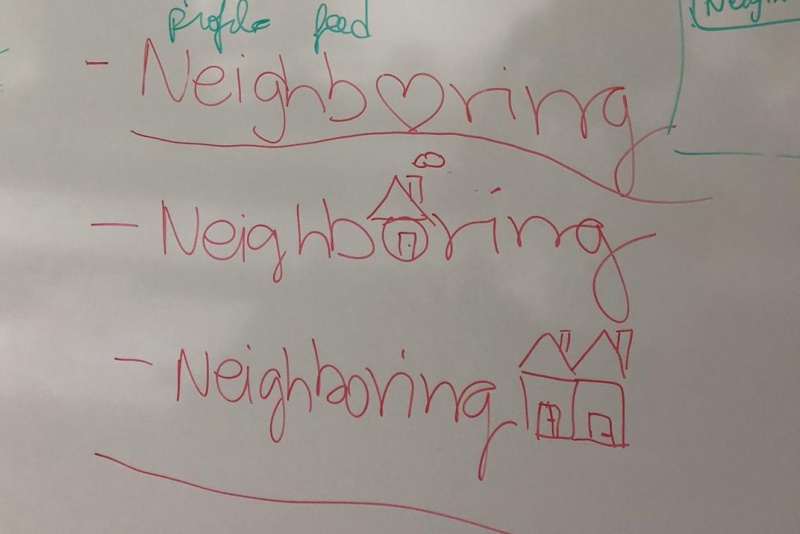 profile feed
- Neighb♡ring
- Neighboring
- Neighboring